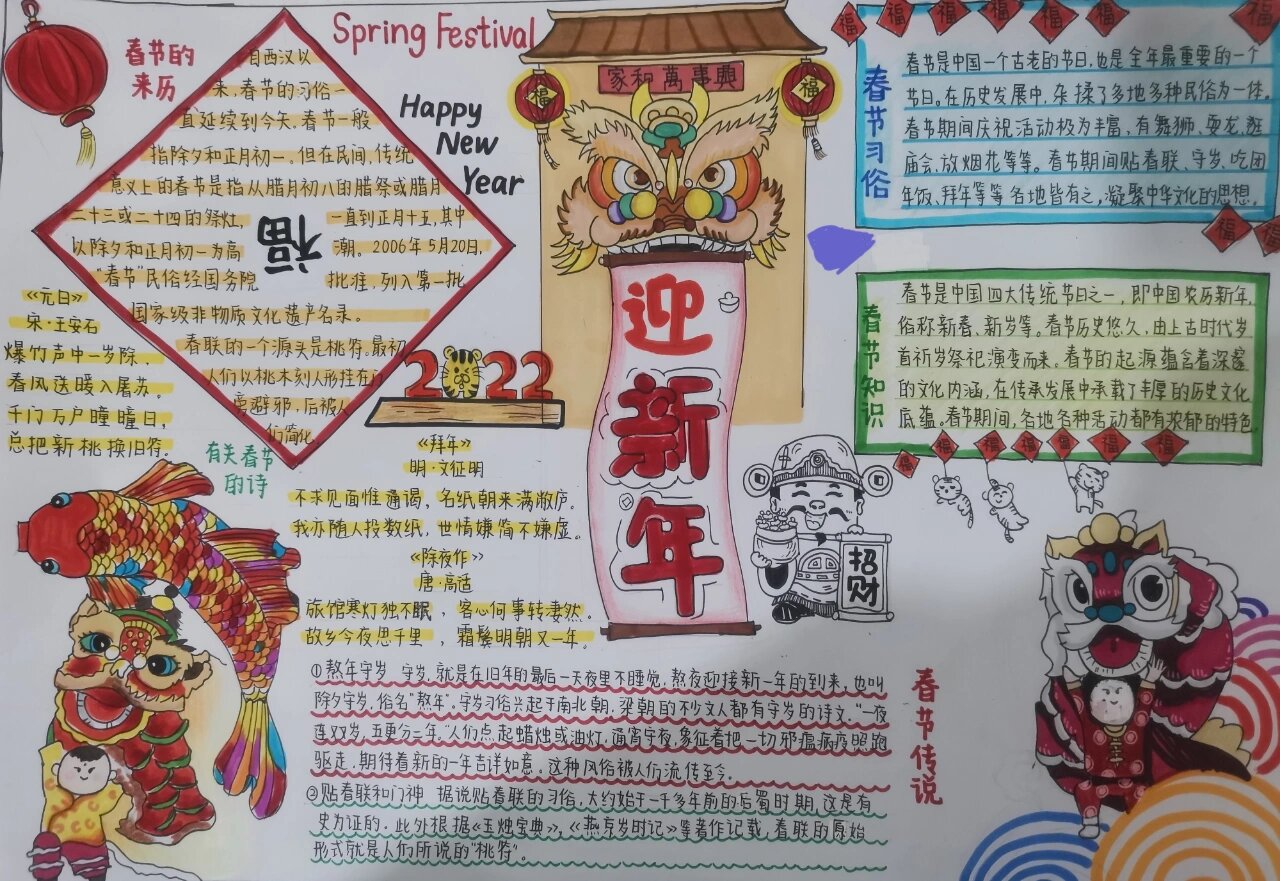 Spring Festival
Happy
New
Year
春节的
来历
自西汉以
来,春节的习俗一
直延续到今天。春节一般
指除夕和正月初一。但在民间,传统
意义上的春节是指从腊月初八的腊祭或腊月
二十三或二十四的祭灶, 一直到正月十五,其中
以除夕和正月初一为高 潮。2006年5月20日,
“春节”民俗经国务院 批准,列入第一批
国家级非物质文化遗产名录。
春联的一个源头是桃符。最初
人们以桃木刻人形挂在门
旁避邪,后被人
们简化
福
《元日》
宋·王安石
爆竹声中一岁除,
春风送暖入屠苏。
千门万户瞳瞳日,
总把新桃换旧符。
有关春节
的诗
2022
《拜年》
明·文征明
不求见面惟通谒,名纸朝来满敝庐。
我亦随人投数纸,世情嫌简不嫌虚。
《除夜作》
唐·高适
旅馆寒灯独不眠,客心何事转凄然。
故乡今夜思千里,霜鬓明朝又一年。
家和萬事興
福
福
迎
新
年
招
财
福 福 福 福 福 福 福
春节习俗
春节是中国一个古老的节日,也是全年最重要的一个
节日。在历史发展中,杂揉了多地多种民俗为一体。
春节期间庆祝活动极为丰富,有舞狮、耍龙、逛
庙会、放烟花等等。春节期间贴春联、守岁、吃团
年饭、拜年等等各地皆有之,凝聚中华文化的思想。
福 福
春节知识
春节是中国四大传统节日之一,即中国农历新年,
俗称新春、新岁等。春节历史悠久,由上古时代岁
首祈岁祭祀演变而来。春节的起源蕴含着深邃
的文化内涵,在传承发展中承载了丰厚的历史文化
底蕴。春节期间,各地各种活动都有浓郁的特色
福 福 福 福 福 福 福
春节传说
①熬年守岁 守岁,就是在旧年的最后一天夜里不睡觉,熬夜迎接新一年的到来,也叫
除夕守岁,俗名“熬年”。守岁习俗兴起于南北朝,梁朝的不少文人都有守岁的诗文。“一夜
连双岁,五更分二年。”人们点起蜡烛或油灯,通宵守夜,象征着把一切邪瘟病疫照跑
驱走,期待着新的一年吉祥如意。这种风俗被人们流传至今。
②贴春联和门神 据说贴春联的习俗,大约始于一千多年前的后蜀时期,这是有
史为证的。此外根据《玉烛宝典》,《燕京岁时记》等著作记载,春联的原始
形式就是人们所说的“桃符”。